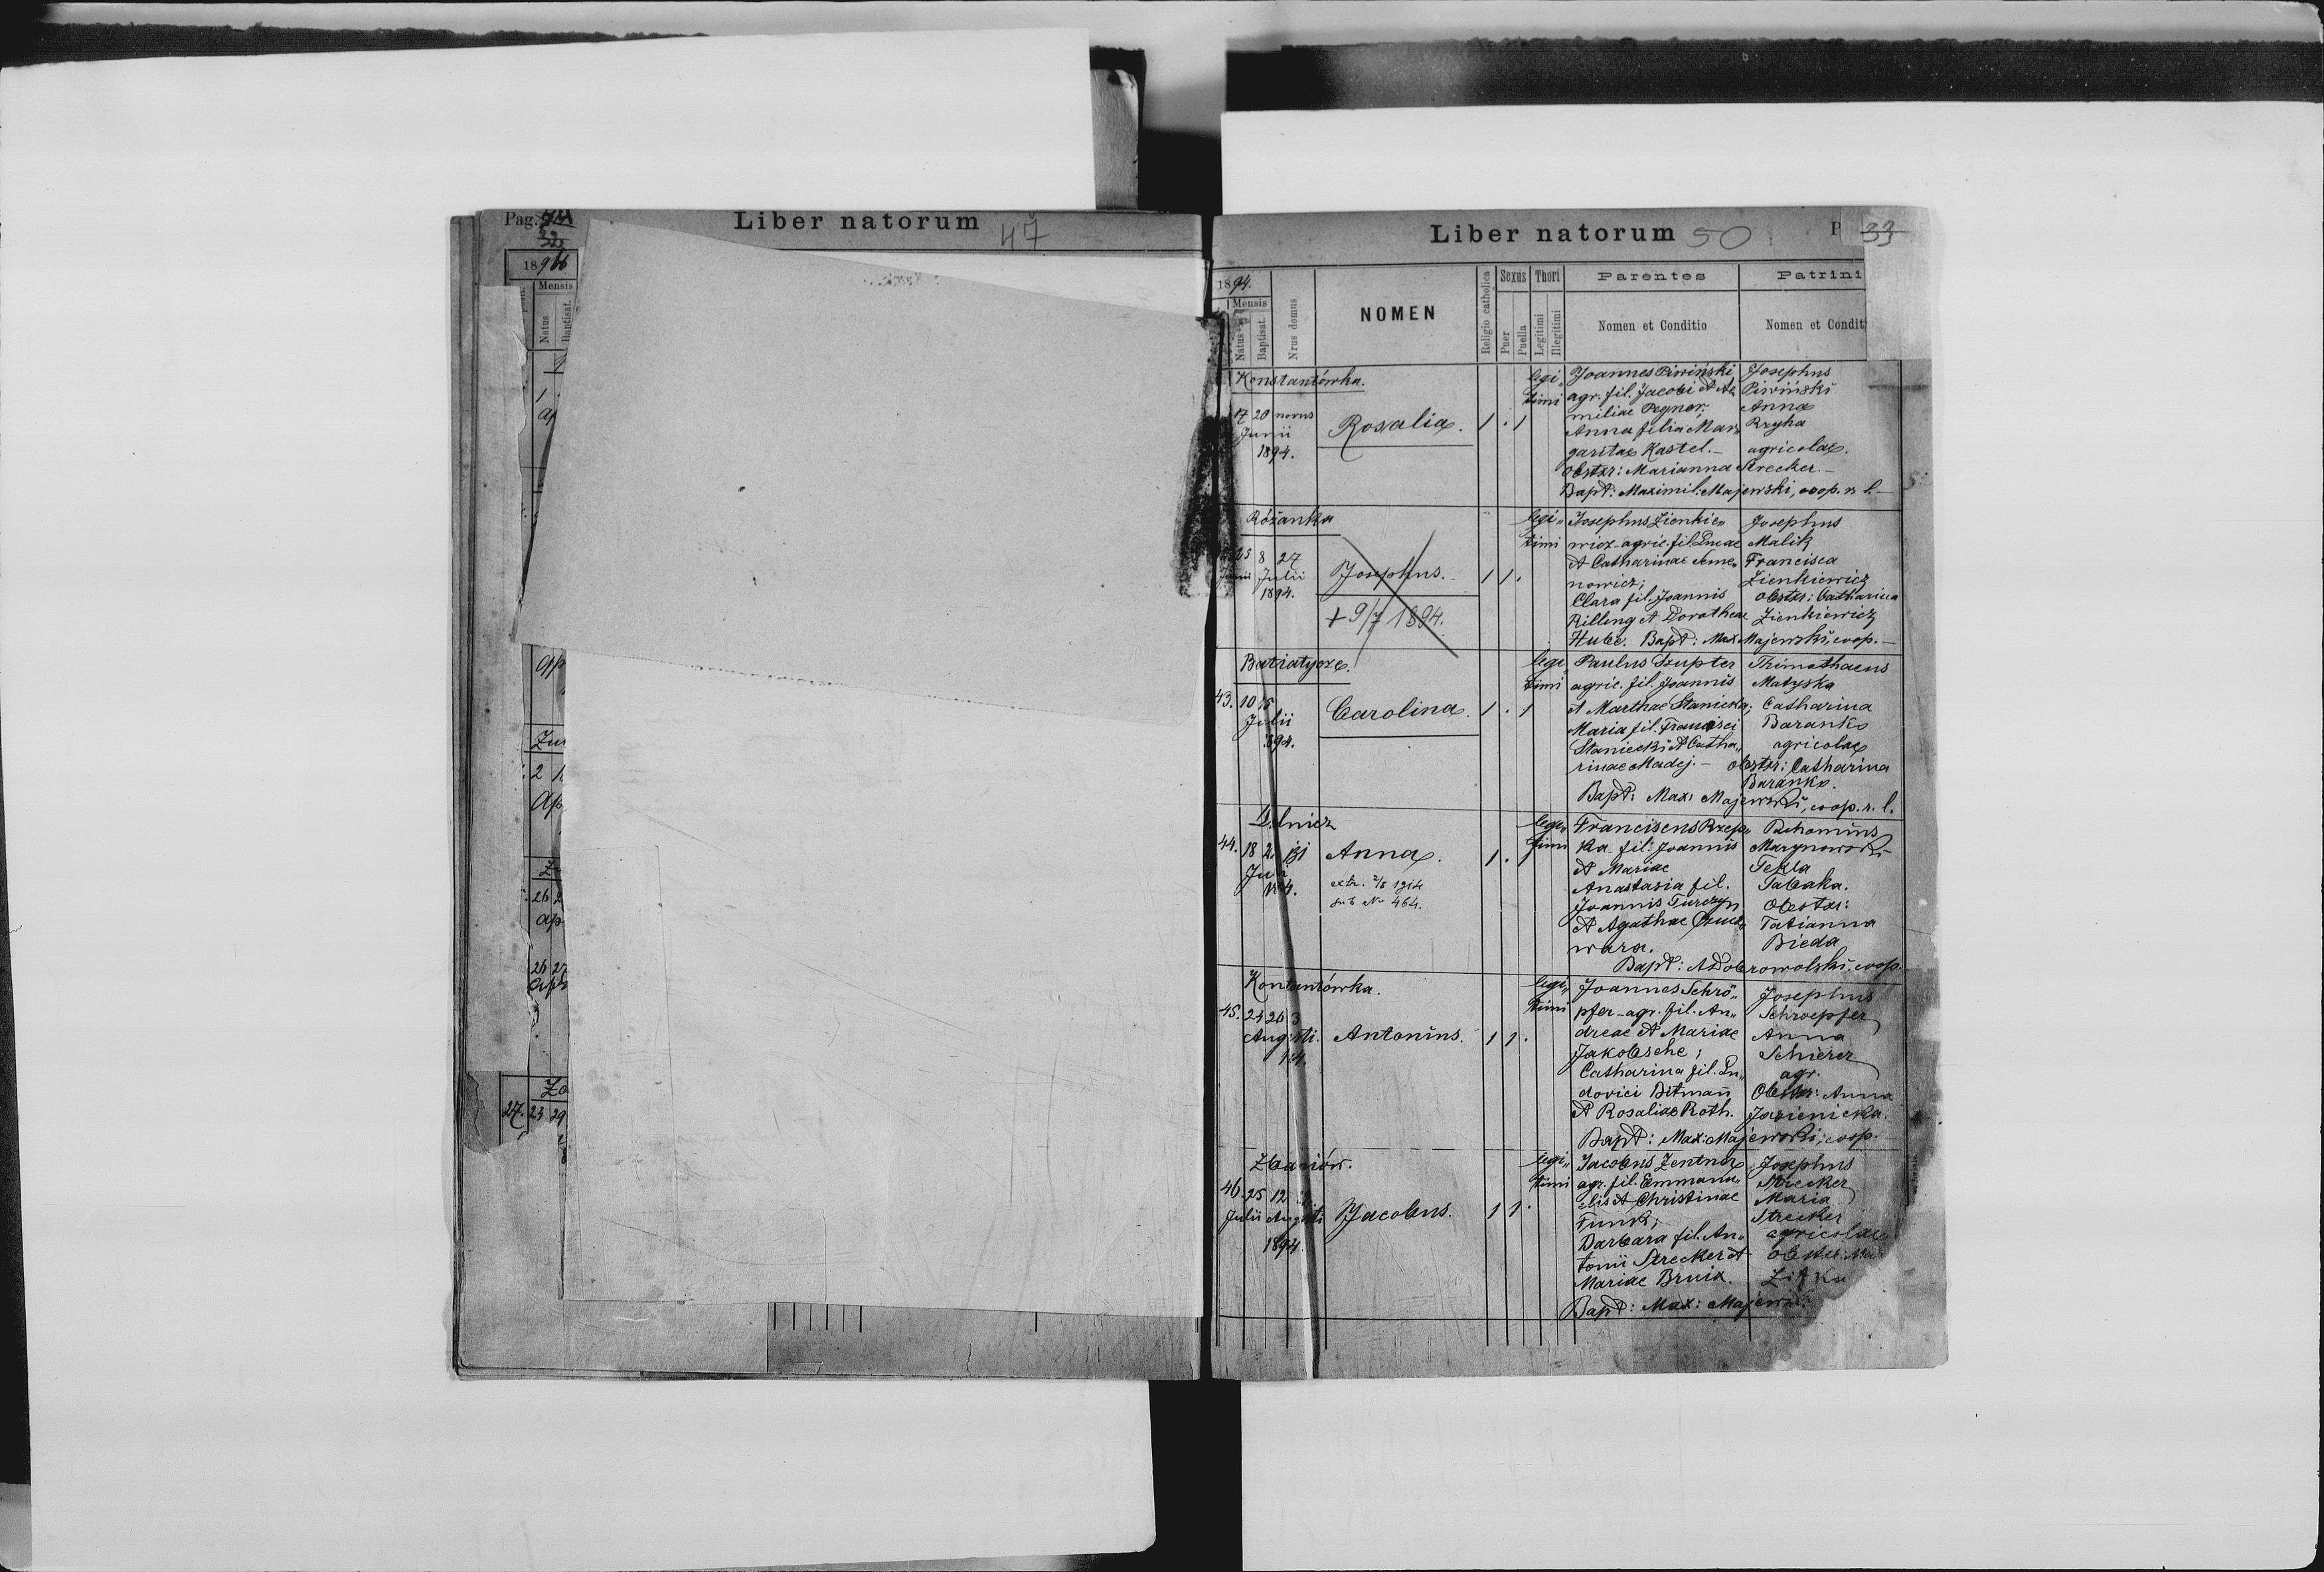 Pag.
32
Liber natorum 47
18
Mensis
Natus
Baptisat.
1
Ap
2
Ap
26 2
Ap
26 27
Apr
27. 23 29
Liber natorum 50
33
1894.
Mensis
Natus
Baptisat.
Nrus domus
NOMEN
Religio catholica
Sexus
Puer
Puella
Thori
Legitimi
Illegitimi
Parentes
Nomen et Conditio
Patrini
Nomen et Condit
Konstantówka.
17 20 novus
Junii
1894.
Rosalia.
1 . 1
legi„
timi
Joannes Piwiński
agr. fil. Jacobi et Ae
miliae Pegner.
Anna filia Mar„
garitae Kastel.-
Obstr: Marianna Strecker.-
Bapt: Maximil. Majewski, coop. r. l.-
Josephus
Piwiński
Anna
Rzyha
agricolae.
Różanka
25 8 27
Junii Julii
1894.
Josephus.
+ 9/7 1894.
1 1 .
legi„
timi
Josephus Zienkie„
wicz agric. fil. Lucae
et Catharinae Seme„
nowicz;
Clara fil. Joannis
Killing et Dorotheae
Hube. Bapt: Max. Majewski, coop.-
Josephus
Malik
Francisca
Zienkiewicz
Obstr: Catharina
Zienkiewicz
Batiatycze.
43. 10 15
Julii
1894.
Carolina.
1 . 1
legi
timi
Paulus Szupter
agric. fil. Joannis
et Marthae Stanicka;
Maria fil. Francisci
Staniecki et Catha„
rinae Madej.-
Bapt: Max: Majewski, coop. r. l.
Thimothaeus
Matyska
Catharina
Baranko
agricolae
obstr: Catharina
Baranko.
44. 18 2
Anna.
extr. 2/5 1914
sub No 464.
1 .
legi„
timi
Franciscus Rzep„
ka fil. Joannis
et Mariae
Anastasia fil.
Joannis Turczyn
et Agathae
wara.
Bapt: A Dobrowolski, coop.
Pachomius
Marynowski
Tekla
Tabaka.
Obstr:
Tatianna
Bieda
Kontantówka.
45. 23 26 3
Augusti.
Antonius.
1 1 .
legi„
timi
Joannes Schrö„
pfer agr. fil. An„
dreae et Mariae
Jakobsche;
Catharina fil. Lu„
dovici Ditmann
et Rosaliae Roth.
Bapt: Max: Majewski, coop.-
Josephus
Schroepfer
Anna
Schierer
agr.
Obstr: Anna
Jazienicka.
Zbaniów.
46. 25 12
Julii Augusti
1894
Jacobus.
1 1 .
legi„
timi
Jacobus Zentner
agr. fil. Emmanu„
elis et Christinae
Funk;
Barbara fil. An„
tonii Strecker et
Mariae Bruix.
Bapt: Max: Majewski
Josephus
Strecker
Maria
Strecker
agricolae
obstr: Ma